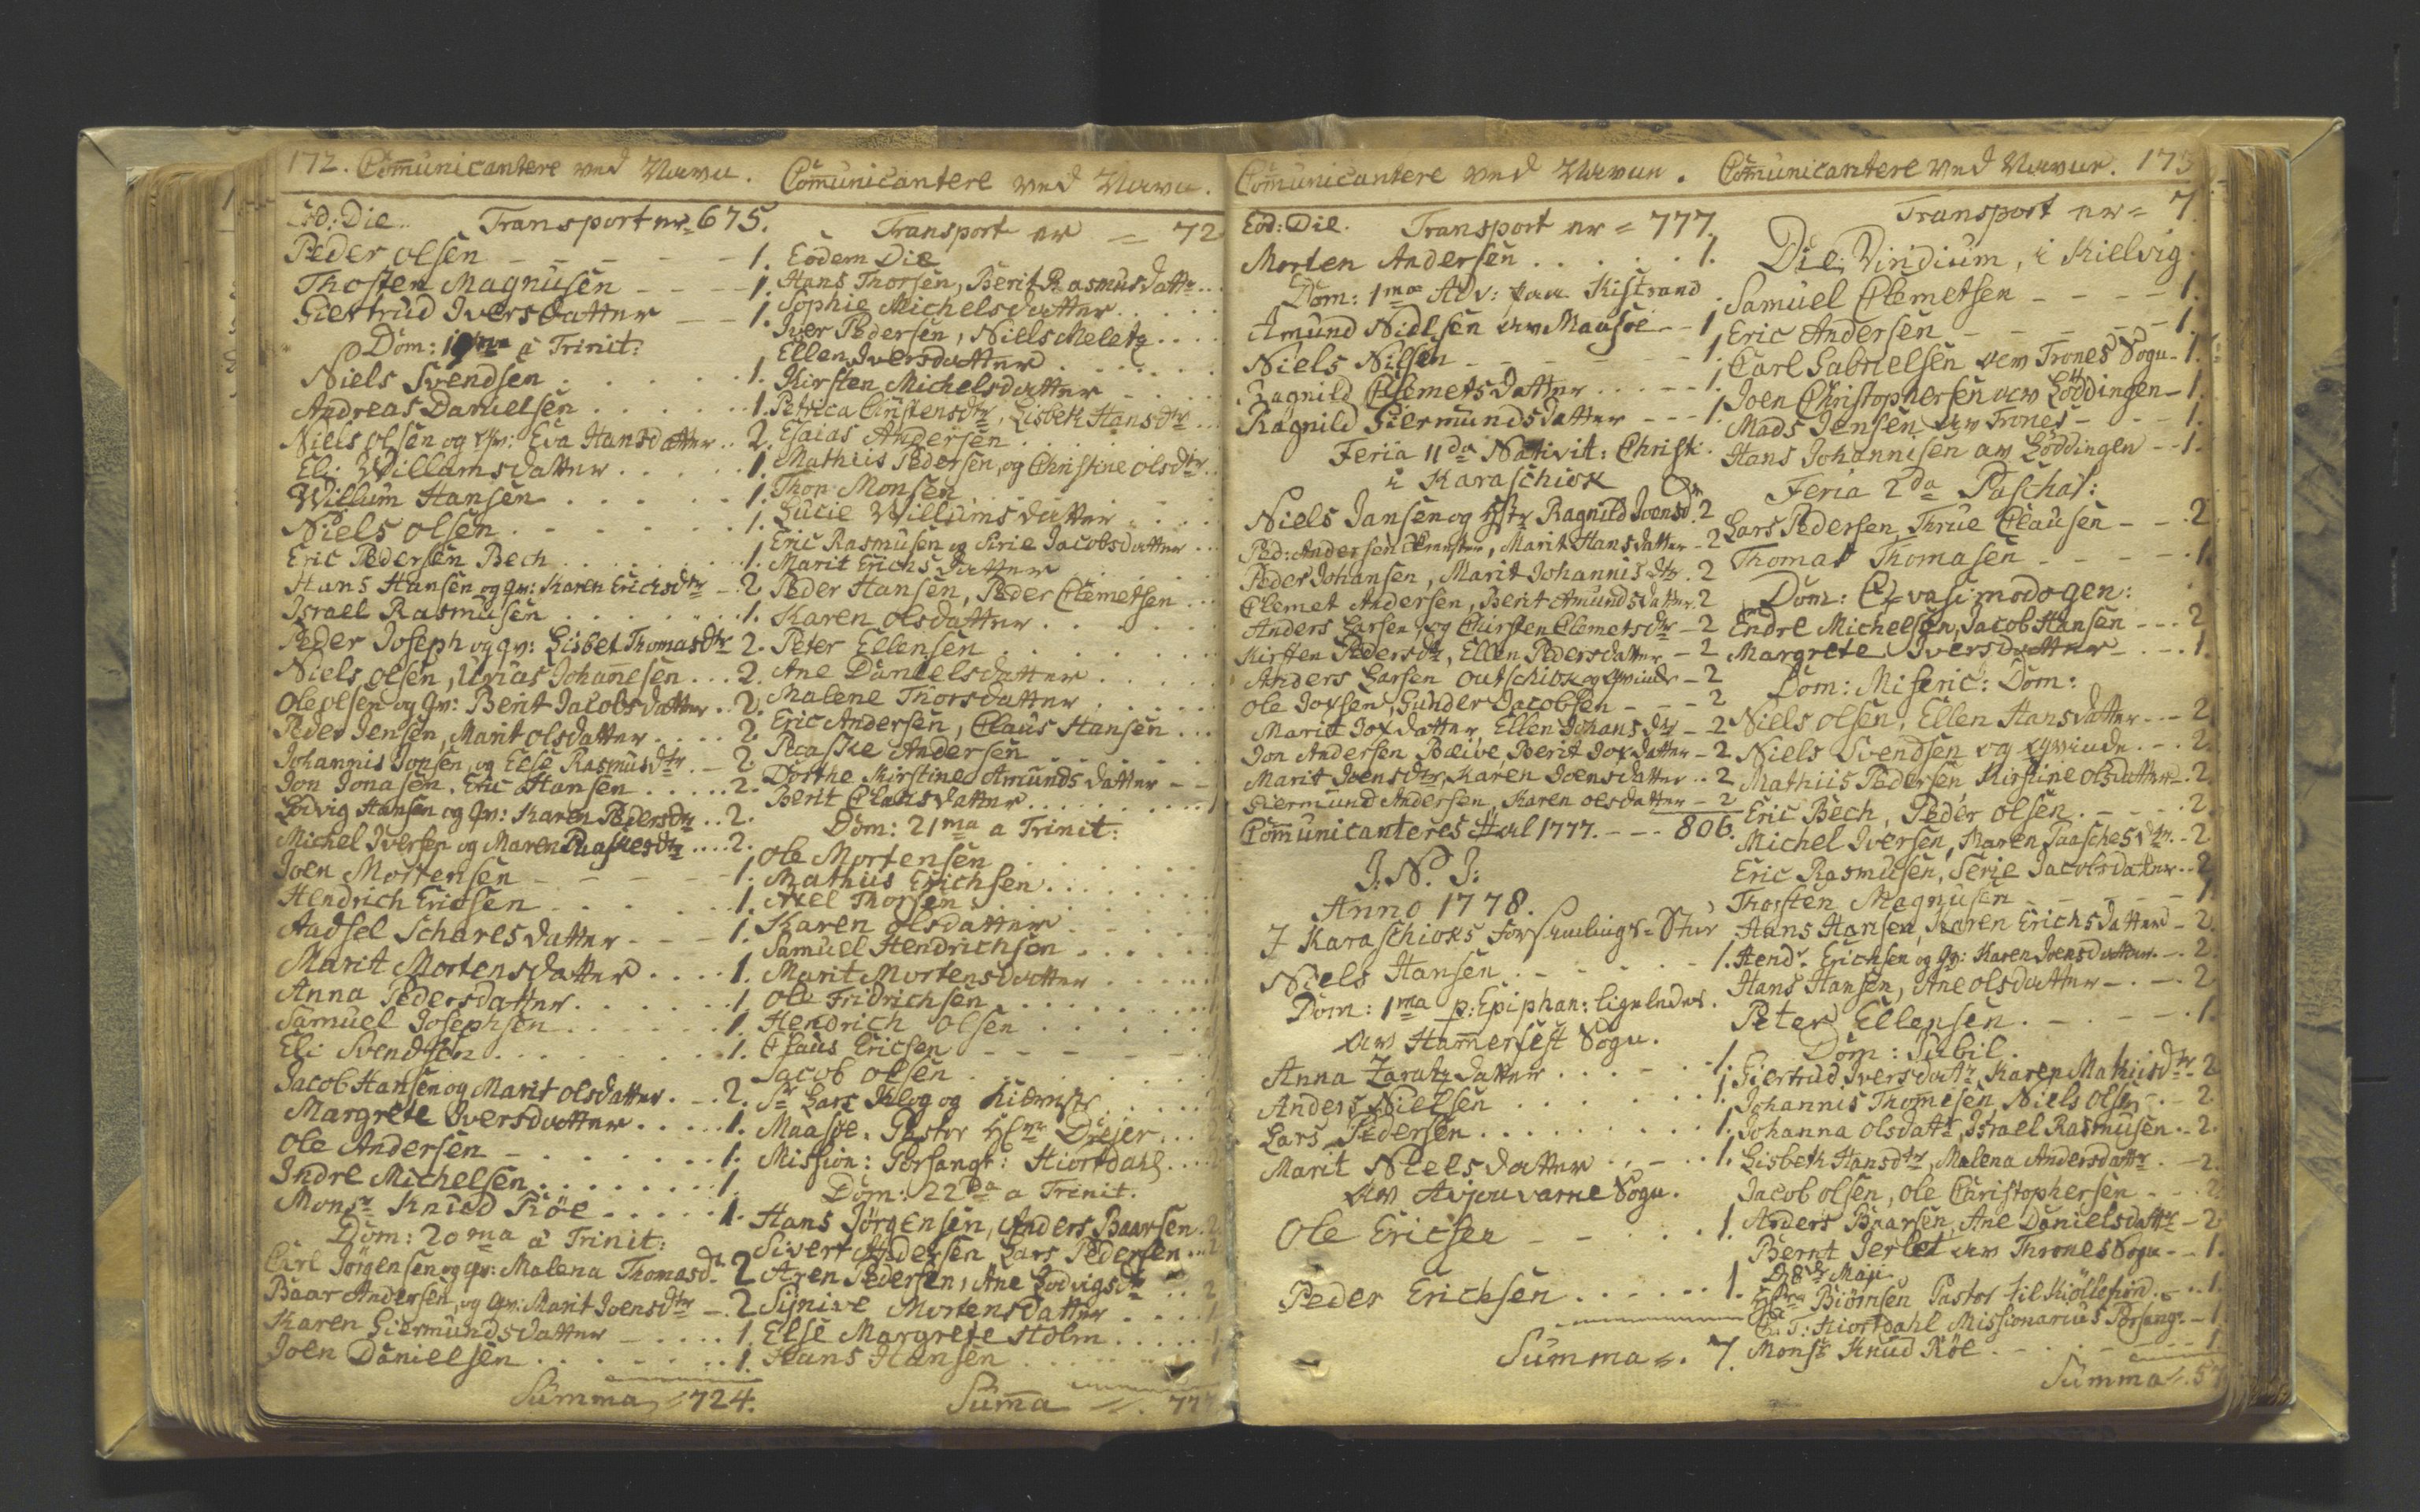 172. Communicantere ved Navn.
Eod: Die. Transport er = 675.
Peder Olsen - - - - - 1.
Thosten Magnusen - - - - 1.
Giertrud Iversdatter - - 1.
Dom: 19na a Trinit:
Niels Svendsen . . . . . 1.
Andreas Danielsen . . . . . 1.
Niels Olsen og Qv: Eva Hansdatter . . 2.
Eli Willumsdatter . . . . . 1.
Willum Hansen . . . . . 1.
Niels Olsen . - - - - - 1.
Eric Pedersen Bech . . . . . 1.
Hans Hansen og Qv: Karen Erichsdtr - . 2
Israel Rasmusen . . . . . 1.
Peder Joseph og Qv: Lisbet Thomasdtr 2.
Niels Olsen, Urias Johannesen . . . 2.
Ole Olsen og Qv: Berit Jacobsdatter . . 2.
Peder Jensen, Marit Olsdatter . . . . 2.
Johannis Jonsen, og Else Rasmusdtr . - 2.
Jon Jonasen, Eric Hansen . . . . . 2.
Lodvig Hansen og Qv: Karen Pedersdtr . . 2.
Michel Iversen og Maren Paaskesdtr . . . . 2.
Joen Mortensen - - - - - 1.
Hendrich Ericsen - - . . . . 1.
Aadsel Scharesdatter - - - 1.
Marit Mortensdatter . . . . 1.
Anna Pedersdatter . . . . . 1.
Samuel Josephsen . . . . . 1.
Eli Svendsen . . . . . 1.
Jacob Hansen og Marit Olsdatter . - 2.
Margrete Iversdatter . . . . . 1.
Ole Andersen - . . . . . 1.
Indre Michelsen . . . . . 1.
Monsr Knud Röe - . . . . 1.
Dom: 20ma a Trinit:
Carl Jörgensen og Qv: Malena Thomasdr - 2
Baar Andersen, og Qv: Marit Joensdtr - . 2
Karen Giermundsdatter - . . . . 1.
Joen Danielsen . . . . . 1.
Summa = 724.
Communicantere ved Navn.
Transport er = 72
Eodem Die
Hans Thorsen, Berit Rasmusdattr . . .
Sophie Michelsdatter . . . . .
Iver Pedersen, Niels Meletz . . . .
Ellen Iversdatter . . . . . .
Kirsten Michelsdatter - . . . .
Petrica Christensdtr, Lisbeth Hansdtr . . .
Esaias Andersen . . . . . .
Mathiis Pedersen, og Christine Olsdtr . .
Thor Monsen . . . . .
Lucie Willumsdatter . . . .
Eric Rasmusen og Sirie Jacobsdatter . . .
Marit Erichsdatter . . . .
Peder Hansen, Peder Clemetsen . . .
Karen Olsdatter . . . . . .
Peter Ellensen . . . . . .
Ane Danielsdatter . . . . .
Malene Thorsdatter . . . . .
Eric Andersen, Claus Hansen . . .
Paaske Andersen . . . . .
Dorthe Kirstine Amundsdatter - -
Berit Clausdatter . . . . . . 1
Dom: 21ma a Trinit:
Ole Mortensen . . . . . .
Mathiis Erichsen . . . . . .
Axel Thorsen . . . . . .
Karen Olsdatter - . . . . .
Samuel Hendrichsen . . . . .
Marit Mortensdatter . . . . . .
Ole Fridrichsen . . . . . .
Hendrich Olsen . . . . . .
Claus Ericsen - - - - -
Jacob Olsen . . . . . .
Sr Lars Klog og . . . . 2
Maasöe: Pastor Hrr Dreier . . .
Mission: Porsangr: Hiortdahl . . . .
Dom: 22da a Trinit.
Hans Jörgensen, Anders Baarsen . 2
Sivert Andersen Lars Pedersen . . 2
Aren Pedersen, Ane Lodvigsdtr . . 2
Sijnive Mortensdatter . . . . 1
Else Margrete Holm . . . . . 1
Hans Hansen . . . . . . 1
Summa = . 777
Communicantere ved Navn.
Eod: Die. Transport er = 777.
Morten Andersen . . . . . 1.
Dom: 1ma Adv: paa Kistrand
Amund Nielsen av Maasöe - - 1.
Niels Nilsen - - - - - 1.
Ragnild Clemetsdatter . . . - - 1.
Ragnild Giermundsdatter - - 1.
Feria 11da Nativit: Christi
i Karaschiok
Niels Jansen og Hstr Ragnild Joensdr. 2
Ped: Andersen, Marit Hansdatter - 2
Peder Johansen, Marit Johannisdtr . 2
Clemet Andersen, Berit Amundsdatter. 2
Anders Larsen, og Chirsten Clemetsdtr - 2
Kirsten Pedersdtr, Ellen Pedersdatter - 2
Anders Larsen Outschiok og Qvinde - 2
Ole Joxsen, Gunder Jacobsen - - - 2
Marit Joxdatter, Ellen Johansdtr - 2
Jon Andersen Bæive, Berit Joxdatter - 2
Marit Joensdtr, Karen Joensdatter . . 2
Giermund Andersen, Karen Olsdatter - 2
Communicanteres Tal 1777. - - - 806.
I. N. J:
Anno 1778.
I Karaschioks Forsamlings-Stue
Niels Hansen . - - - - - 1.
Dom: 1ma p: Epiphan: ligeledes.
av Hamerfest Sogn.
Anna Zaratzdatter . . . . - 1.
Anders Nielsen . . . . . 1.
Lars Pedersen . . . . . . 1.
Marit Nielsdatter . . - . . 1.
av Avjouvarne Sogn.
Ole Ericsen - - . . . 1.
Peder Erichsen . . . . . . 1.
Summa = . 7.
Communicantere ved Navn. 173
Transport er = 7.
Die: Viridium, i Kielvig.
Samuel Clemetsen - - - - 1.
Eric Andersen - - - - - 1.
Carl Gabrielsen av Trones Sogn - 1.
Joen Christophersen av Löddingen - 1.
Mads Jensen av Trones - - - 1.
Hans Johannisen av Löddingen - - 1.
Feria 2da Paschat:
Lars Pedersen, Thrue Clausen - - . 2
Thomas Thomasen - - - - 1.
Dom: Qvasimodogen:
Endre Michelsen, Jacob Hansen - - - 2
Margrete Iversdatter - . - . 1.
Dom: Miseric: Dom:
Niels Olsen, Ellen Hansdatter - - - 2
Niels Svendsen og Qvinde . - . 2.
Mathiis Pedersen, Kirstine Olsdatter - . 2
Eric Bech, Peder Olsen . - - - . 2
Michel Iversen, Maren Paaschesdtr. - 2
Eric Rasmusen, Serie Jacobsdatter . . 2
Thorsten Magnusen - - - - 1
Hans Hansen, Karen Erichsdatter - 2.
Hendr. Erichsen og Qv: Karen Joensdatter. - . 2.
Hans Hansen, Ane Olsdatter - . - - 2
Peter Ellensen . - . - - . 1.
Dom: Jubil.
Giertrud Iversdatr, Karen Mathiisdtr - 2
Johannis Thomesen, Niels Olsen . - 2.
Johanna Olsdatr, Israel Rasmusen - . 2.
Lisbeth Hansdtr, Malena Andersdattr . - 2.
Jacob Olsen, Ole Christophersen - - . 2.
Anders Baarsen, Ane Danielsdattr - 2
Bernt Jerlet av Throne Sogn - - 1.
D. 8de Maji
Hr Biörnsen Pastor til Kiöllefiord . . . 1.
T: Hiortdahl Missionarius Porsangr. - 1
Monsr Knud Röe . - . . . - 1.
Summa = . 57